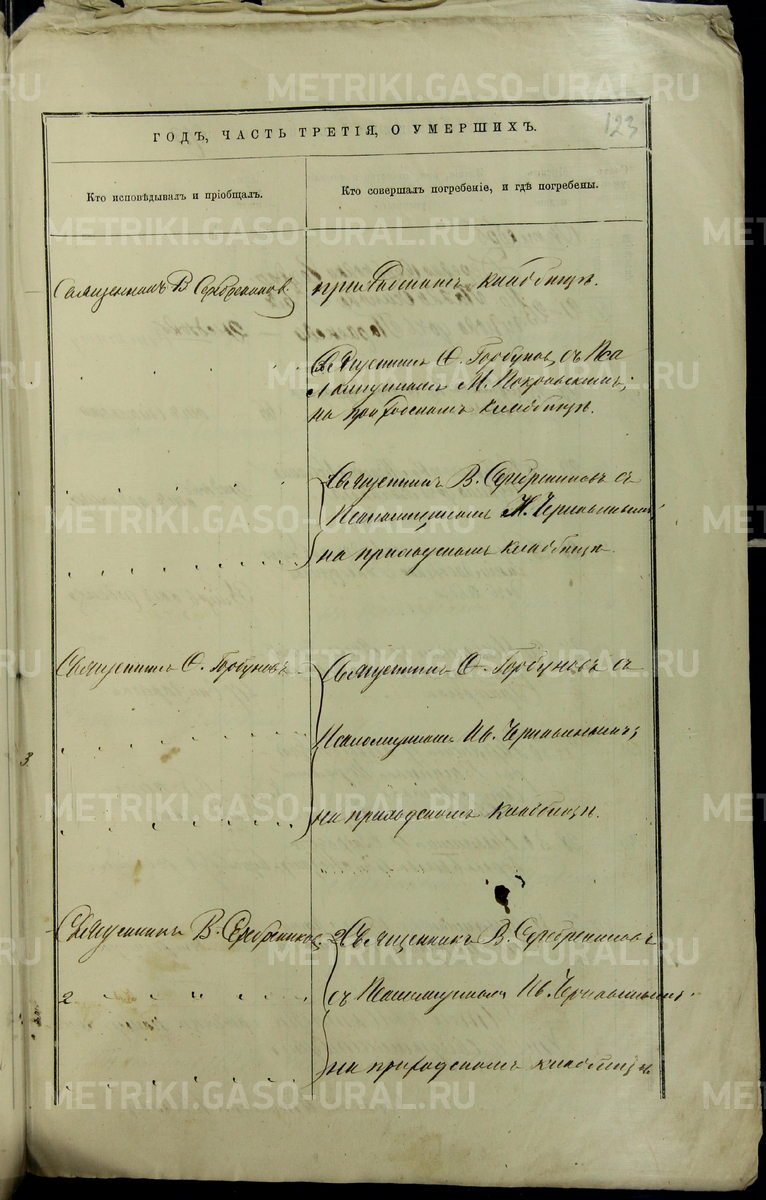 METRIKI.GASO-URAL.RU
123
ГОДЪ, ЧАСТЬ ТРЕТІЯ, О УМЕРШИХЪ.
Кто исповѣдывалъ и пріобщалъ.
Кто совершалъ погребеніе, и гдѣ погребены.
Священникъ В Серебрениковъ
приходскомъ кладбищѣ.
Священникъ Ѳ. Горбуновъ, съ Пса
ломщикомъ
на приходскомъ кладбищѣ.
Священникъ В. Серебрениковъ съ
Псаломщикомъ
на приходскомъ кладбищѣ
Священникъ Ѳ. Горбуновъ
Священникъ Ѳ. Горбуновъ съ
Псаломщикомъ Ив. Чернавинымъ;
3.
на приходскомъ кладбищѣ.
Священникъ В. Серебрениковъ.
Священникъ В. Серебрениковъ
съ Псаломщикомъ Ив. Чернавинымъ
на приходскомъ кладбищѣ